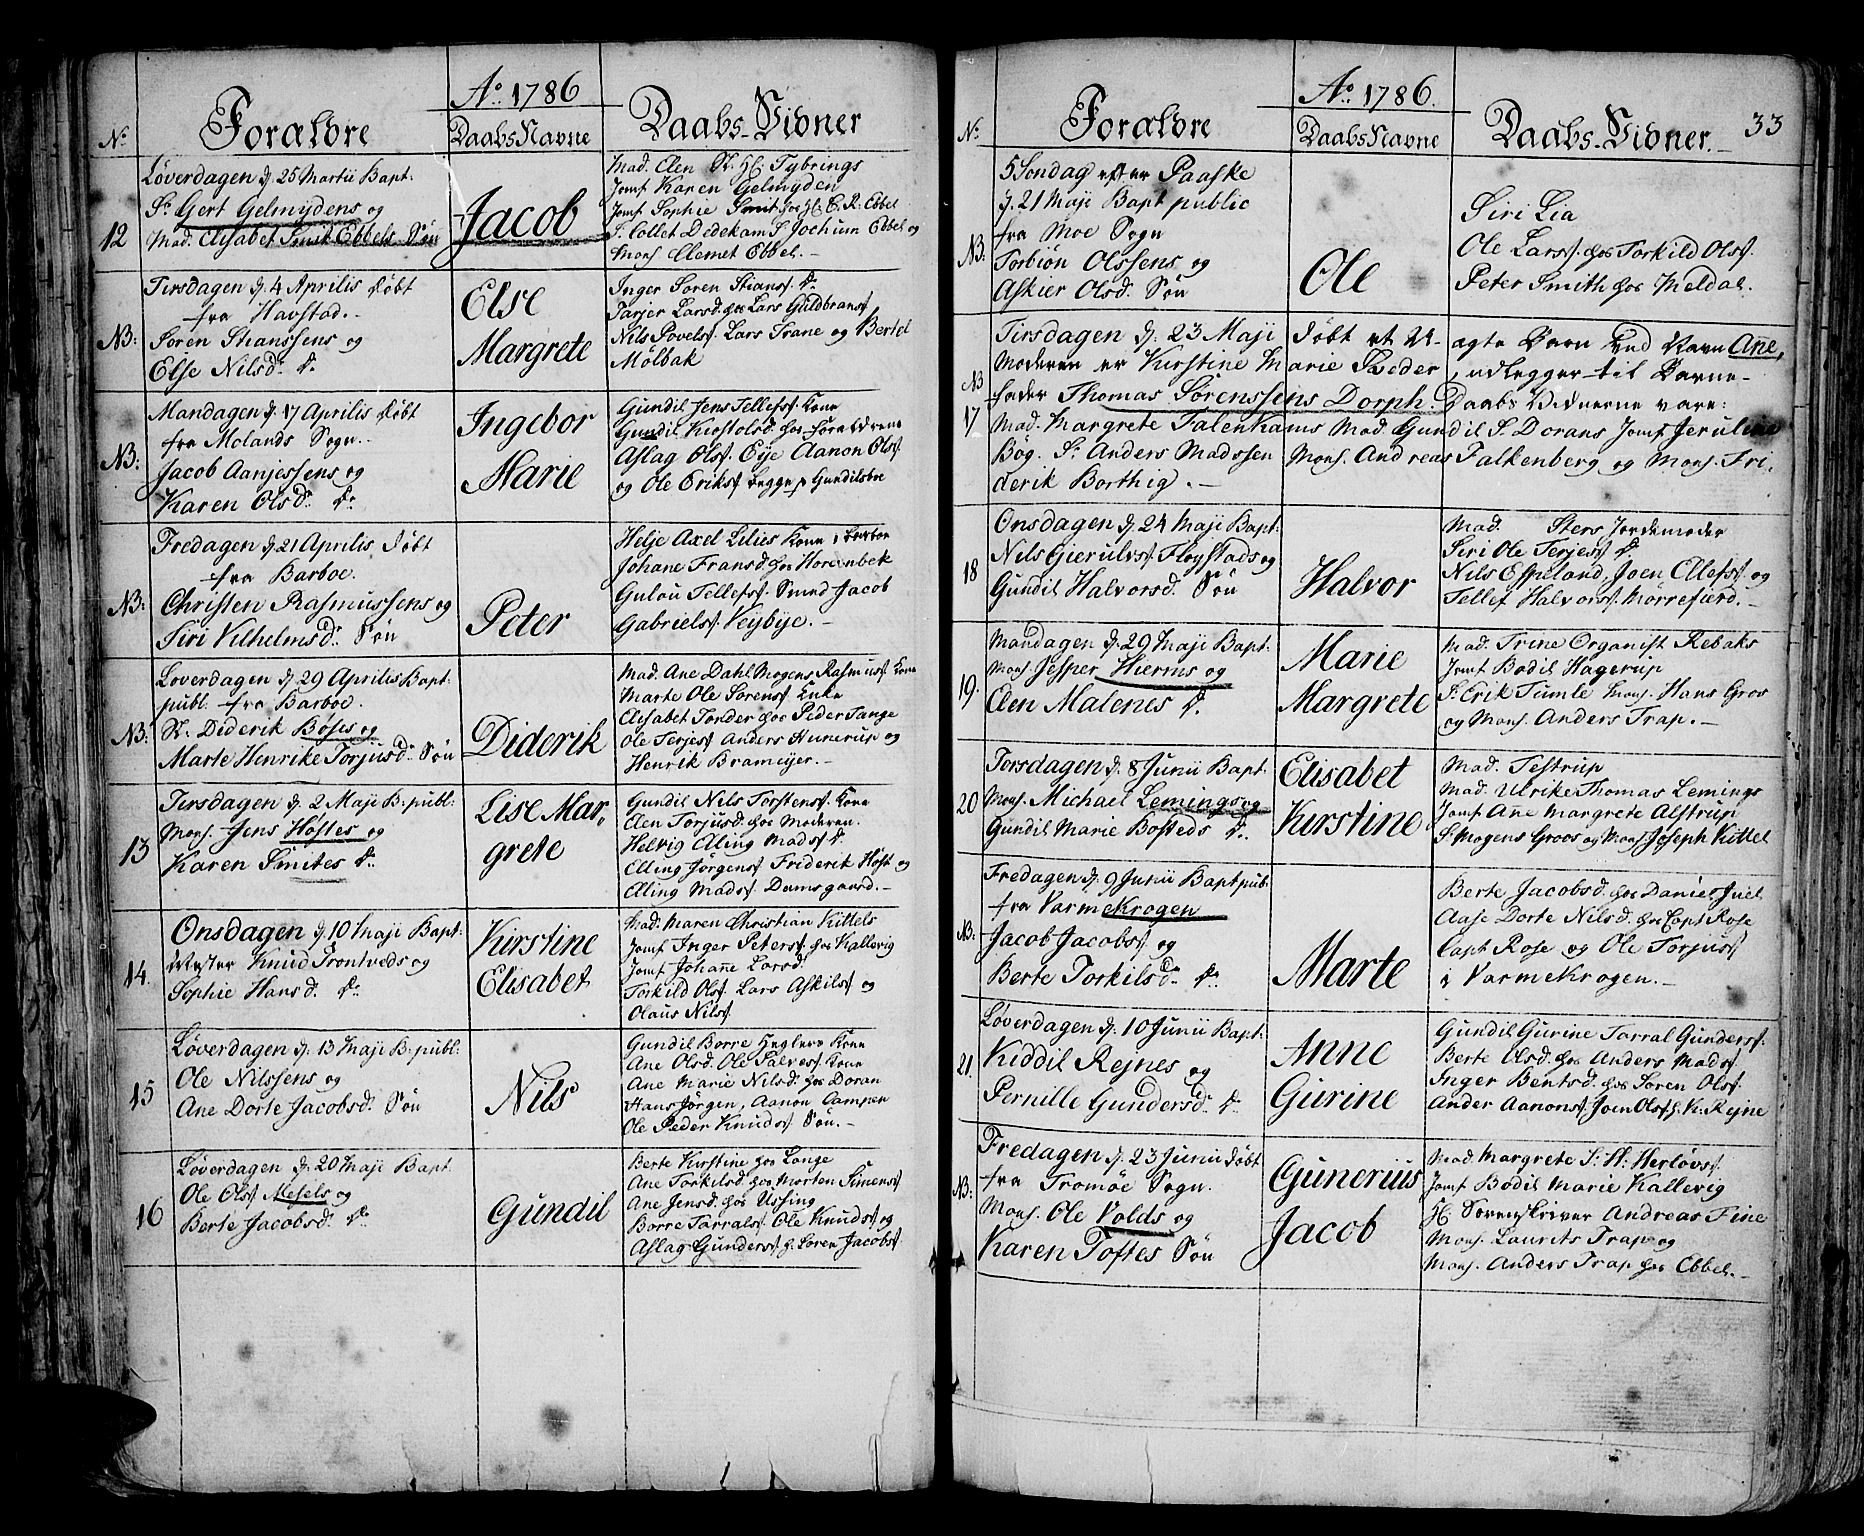 Ao. 1786
No.
Forældre
Daabs Navne
Daabs-Vidner
Løverdagen d. 25 Martii Bapt:
Sr. Gert Gelmydens og
Mad. Elisabet Smit Ebbels Søn
12
Jacob
Mad. Elen Sr. H: Tybrings
Jomf Karen Gelmyden
Jomf Sophie Smit hos H: C. R. Ebbel
S. Collet Dedekam S. Jochum Ebbel og
Mons Clemet Ebbel.
Tirsdagen d. 4 Aprilis døbt
fra Havstad.
NB:
Søren Stianssens og
Else Nilsd. Dr.
Else
Margrete
Inger Søren Stians. Dr.
Tarjer Larsd. hos Lars Guldbrans
Nils Povels. Lars Trane og Bertel
Mølbak
Mandagen d. 17 Aprilis døbt
fra Molands Sogn.
NB:
Jacob Aanjessens og
Karen Olsd. Dr.
Ingebor
Marie
Gundil Jens Tellefs. Kone
Gundil Kirstolsd. hos Forældrene
Aslag Ols. Eye Aanon Ols.
og Ole Eriks begge p Gundilsboe
Fredagen d. 21 Aprilis, døbt
fra Barboe.
NB:
Christen Rasmussens og
Siri Vilhelmsd. Søn
Peter
Helje Axel Lilies Kone i Barboe
Johane Fransd. hos Horenbek
Gulou Tellefs. Smed Jacob
Gabriels. Vejbye.
Løverdagen d. 29 Aprilis Bapt:
publ. fra Barboe.
NB:
Sr. Diderik Bøses og
Marte Henrike Torjusd. Søn
Diderik
Mad. Ane Dahl Mogens Rasmus. Kone
Marte Ole Sørens. Enke
Elisabet Tonder hos Peder Tange
Ole Terjes Anders Hunerup og
Henrik Brameyer.
Tirsdagen d. 2 Maji B: publ:
Mons. Jens Høstes og
13
Karen Smites Dr.
Lise Mar-
grete
Gundil Nils Torstens. Kone
Elen Torjusd. hos Moderen.
Helvig Eling Mads. Dr.
Elling Jörgens Friderik Høst og
Eling Mads Damsgaard.
Onsdagen d. 10 Maji Bapt:
Mester Knud Trontveds og
14
Sophie Hansd. Dr.
Kirstine
Elisabet
Mad. Maren Christian Kittels
Jomf Inger Peters. hos Kallevig
Jomf Johanne Larsd.
Torkild Ols. Lars Askils og
Olaus Nils
Løverdagen d. 13 Maji B: publ:
15
Ole Nilssens og
Ane Dorte Jacobsd. Søn
Nils
Gundil Borre Heglers Kone
Ane Olsd. Ole Salves. Kone
Ane Marie Nilsd. hos Doran
Hans Jörgen, Aanon Campen
Ole Peder Knuds Søn.
Løverdagen d. 20 Maji Bapt
16
Ole Ols Mesels og
Berte Jacobsd. Dr.
Gundil
Berte Kirstine hos Lange
Ane Torkilsd. hos Morten Simens
Ane Jensd. hos Ussing
Borre Tarrals. Ole Knuds og
Aslag Gunders h. Søren Jacobs
Ao. 1786.
No.
Forældre
Daabs Navne
Daabs-Vidner.
33
5 Søndag efter Paaske
d. 21 Maji Bapt public
fra Moe Sogn
NB:
Torbiön Olssens og
Askier Olsd. Søn
Ole
Siri Lia
Ole Lars. hos Torkild Ols.
Peter Smith hos Meldal.
Tirsdagen d. 23 Maji døbt et U-ægte Barn ved Navn Ane,
Moderen er Kirstine Marie Sæder, udlegger til Barne-
NB 17
fader Thomas Sørenssens Dorph. Daabs Vidnerne vare:
Mad. Margrete Falenkams Mad Gundil S. Dorans Jomf Jeruline
Bög. Sr. Anders Madssen Mons. Andreas Falkenberg og Mons. Fri-
derik Borthig.
Onsdagen d. 24 Maji Bapt:
18
Nils Gierulvs. Fløystads og
Gundil Halvorsd. Søn
Halvor
Mad. Sters Jordemoder
Siri Ole Terjes Dr.
Nils Espeland, Joen Ellefs. og
Tellef Halvors. Morrefierd.
Mandagen d. 29 Maji Bapt.
19.
Mons. Jesper Hierms og
Elen Malenes Dr.
Marie
Margrete
Mad. Trine Organist Rebaks
Jomf Bodil Hagerup
S. Erik Tumle Mons. Hans Gros
og Mons. Anders Trap.
Torsdagen d. 8 Junii Bapt.
20
Mons. Michael Lemings og
Gundil Marie Bosteds Dr.
Elisabet
Kirstine
Mad. Testrup
Mad. Ulrike Thomas Lemings
Jomf Ane Margrete Alstrup
S Mogens Groos og Mons Joseph Kittel
Fredagen d. 9 Junii Bapt pub.
fra Varmekrogen
NB:
Jacob Jacobs. og
Berte Torkilsd. Dr.
Marte
Berte Jacobsd. hos Daniel Juel
Aase Dorte Nilsd. hos Capt Rose
Capt Rose og Ole Torjus
i Varmekrogen.
Løverdagen d. 10 Junii Bapt:
21.
Kiddil Rejnes og
Pernille Gundersd. Dr.
Anne
Gurine
Gundil Gurine Tarral Gunders.
Berte Olsd. hos Anders Mads
Inger Bentsd. hos Søren Ols.
Ander Aanons. Joen Ols h. K. Rejne
Fredagen d. 23 Junii døbt
fra Tromøe Sogn.
NB:
Mons. Ole Volds og
Karen Toftes Søn
Gunerius
Jacob
Mad. Margrete S. H. Herlövs.
Jomf Bodil Marie Kallevig
H Sorenskriver Andreas Fine
Mons. Laurits Trap og
Mons. Anders Trap hos Ebbel.